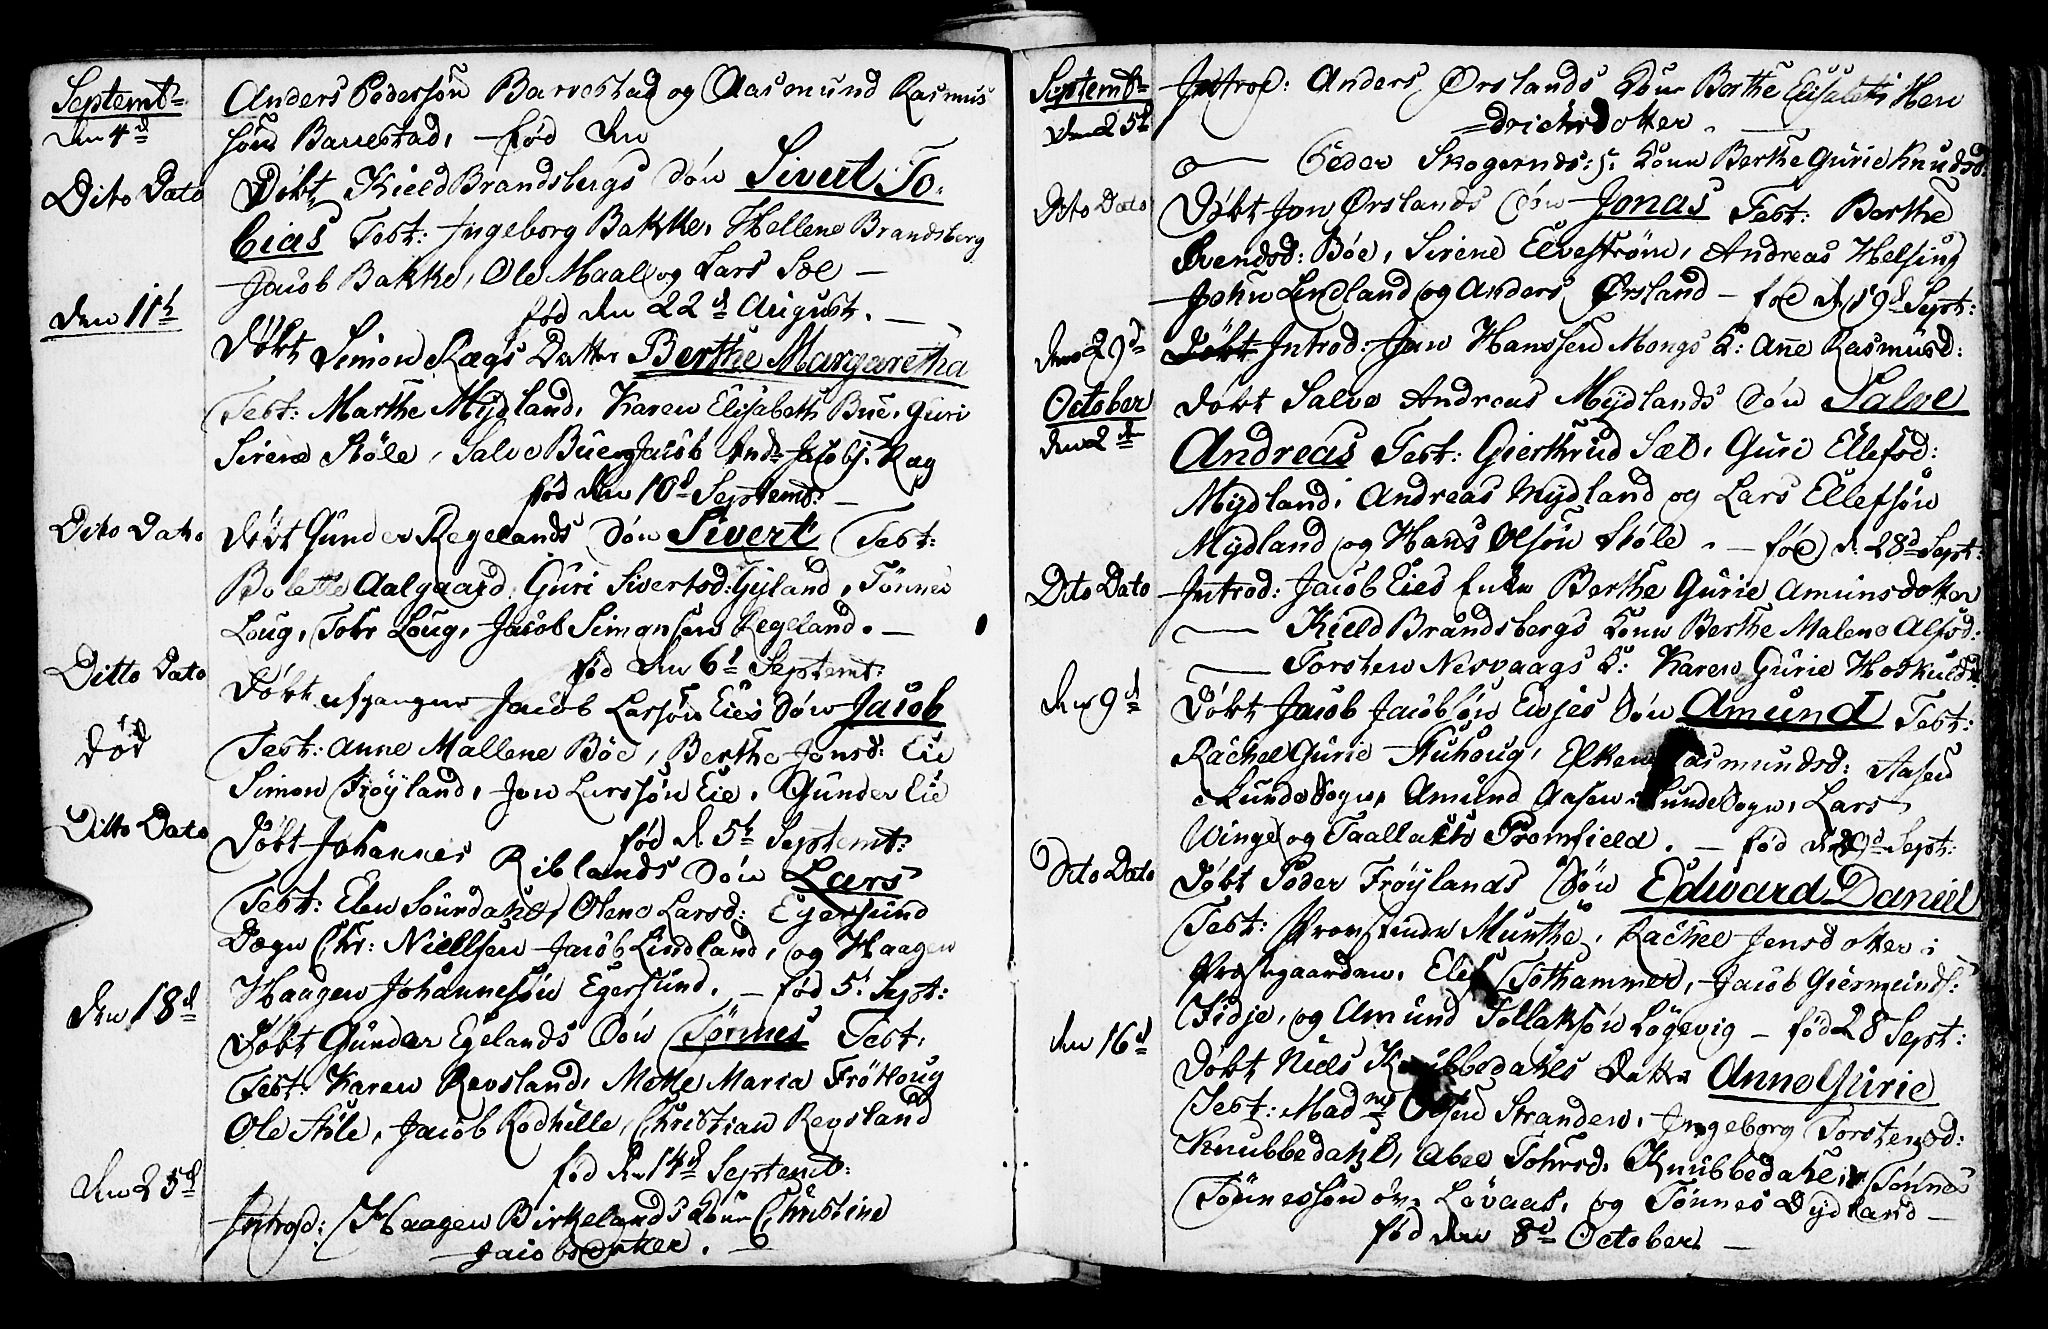 Septemt:
den 4d
Anders Pederssøn Barvestad og Aasmund Rasmus
søns Barrestad, — fød den
Dito Dato
Døbt Kield Brandsbergs Søn Sivert To-
bias Test: Ingeborg Bakke, Hellene Brandsberg
Jacob Bakke, Ole Maal og Lars Sæl —
fød den 22d August. —
den 11t
Døbt Simon Rægs Datter Berthe Margaretha
Test: Marthe Mydland, Karen Elisabeth Bue, Guri
Sirene Støle, Salve Bue og Jacob And: Jacobs: Ræg
fød den 10d Septemt: —
Dito Dato
Døbt Gunder Regelands Søn Sivert Test:
Bolette Aalgaard, Guri Sivertsd: Gyland, Tønnes
Loug, Tobr Loug, Jacob Simonsen Regeland. —
fød den 6t Septemt:
Ditto Dato
Døbt afgangne Jacob Larssøn Eies Søn Jacob
død
Test: Anne Mallene Böe, Berthe Jonsd: Eie
Simon Frøyland, Jon Larssøn Eie, Gunder Eie
fød d. 5t Septemt:
Ditto Dato
Døbt Johannes Riblands Søn Lars
Test: Elen Sourdahl, Olene Larsd: Egersund
Dægn Chr: Niellsen Jacob Lindland, og Haagen
Haagen Johannesøn Egersund. — fød 5t Sept:
den 18d
Døbt Gunder Egelands Søn Tønnes Test:
Test: Karen Revsland, Mette Maria Frøthoug
Ole Støle, Jacob Rodhille, Christian Revsland
fød den 14d Septemt:
den 25d
Introd: Haagen Birkelands Kone Christine
Jacobsdatter. —
Septemt:
den 25t
Introd: Anders Ørslands Kone Berthe Elisabeth Hen
drichsdotter. —
— Peder Skogernds: s: Kone Berthe Gurie Knudsd:
Dito Dato
Døbt Jon Ørslands Søn Jonas Test: Berthe
Svendsd: Böe, Sirene Elvestrøm, Andreas Helsing
John Lindland og Anders Ørsland — fød d. 19d Sept:
den 29d
Døbt Introd: Jan Hanssen Mongs K: Anne Rasmusd:
October
den 2d
Døbt Salve Andreas Mydlands Søn Salve
Andreas Test: Gierthrud Sæl, Guri Ellefsd:
Mydland, Andreas Mydland og Lars Ellefsøn
Mydland og Hans Olsøn Støle. — fød d. 28d Sept:
Dito Dato
Introd: Jacob Eies Enke Berthe Gurie Amunsdotter
— Kield Brandsbergs Kone Berthe Malene Alfsd:
— Torsten Nesvaags K: Karen Gurie Hoskulds:
den 9d
Døbt Jacob Jacobsøn Eies Søn Amund Test:
Rachel Gurie Fuhoug, Elken Rasmundsd: Aasen
i Lunde Sogn, Amund Aasen i Lunde Sogn, Lars
Winge og Taallak Tromfield. — fød d. 29d Sept:
Dito Dato
Døbt Peder Frøylands Søn Edward Daniel
Test: Provstinde Munthe, Rachel Jensdotter i
Præstegaarden, Elef Tothammer, Jacob Giermunds:
Fidje, og Amund Tollaksøn Løgevig — fød 28 Sept:
den 16d
Døbt Niels Knubbedahls Datter Anne Gurie
Test: Madme Olsen Stranden, Ingeborg Torstensd:
Knubbedahl, Abel Tohrsd. Knubbedahl, Tønnes
Tønnessøn øv: Løvaas, og Tønnes Dydland —
fød den 8d October. —